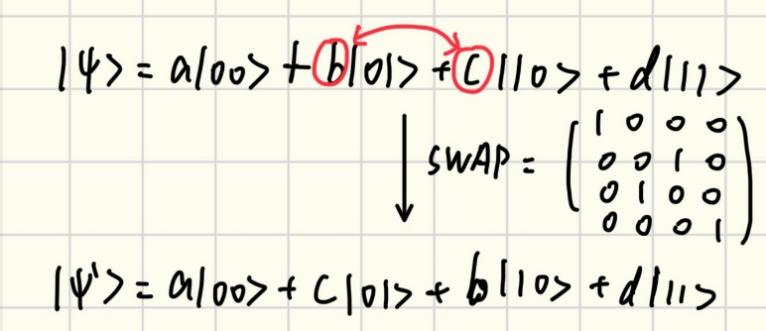 |ψ> = a|00> + b|01> + c|10> + d|11>
SWAP = ( 1 0 0 0
0 0 1 0
0 1 0 0
0 0 0 1 )
|ψ'> = a|00> + c|01> + b|10> + d|11>